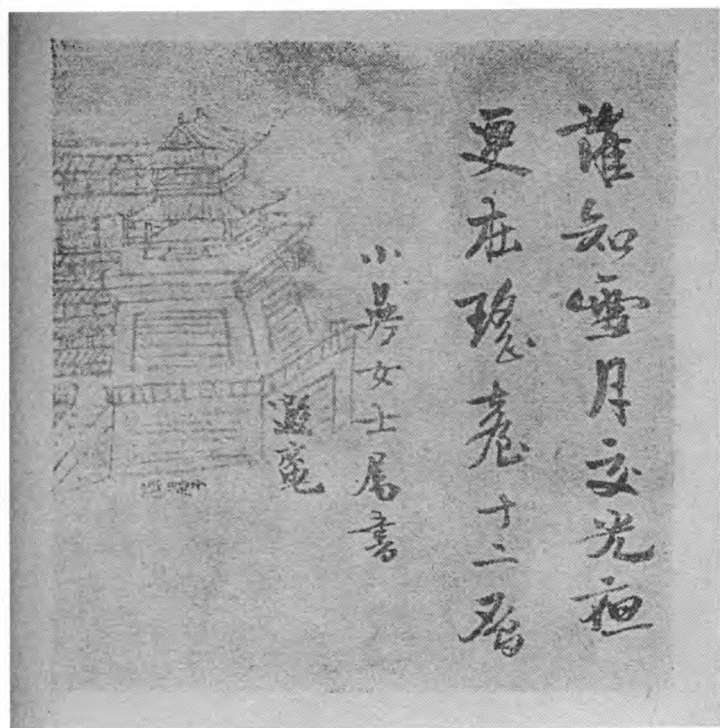 誰知雪月交光夜
更在瑤臺十二層
小女士属書
遐庵